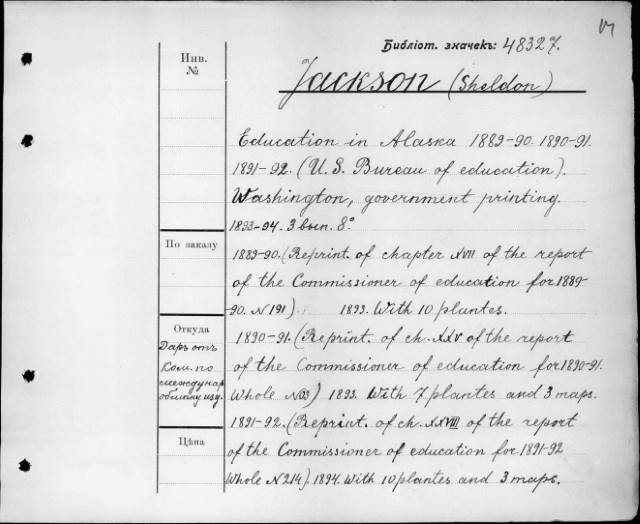 Библіот. значекъ: 48327.
Инв.
№
Jackson (Sheldon)
Education in Alaska 1889-90. 1890-91.
1891-92. (U. S. Bureau of education).
Washington, government printing.
1893-94. 3 вып. 8°.
По заказу
1889-90. (Reprint. of chapter XVII of the report
of the Commissioner of education for 1889-
90. N 191) 1893. With 10 plantes.
Откуда
Даръ отъ
Ком. по
международ
обмѣну изд.
1890-91. (Reprint. of ch. XXV of the report
of the Commissioner of education for 1890-91.
Whole N03) 1893. With 7 plantes and 3 maps.
1891-92. (Reprint. of ch. XXVIII of the report
Цѣна
of the Commissioner of education for 1891-92
Whole N 214). 1894. With 10 plantes and 3 maps.